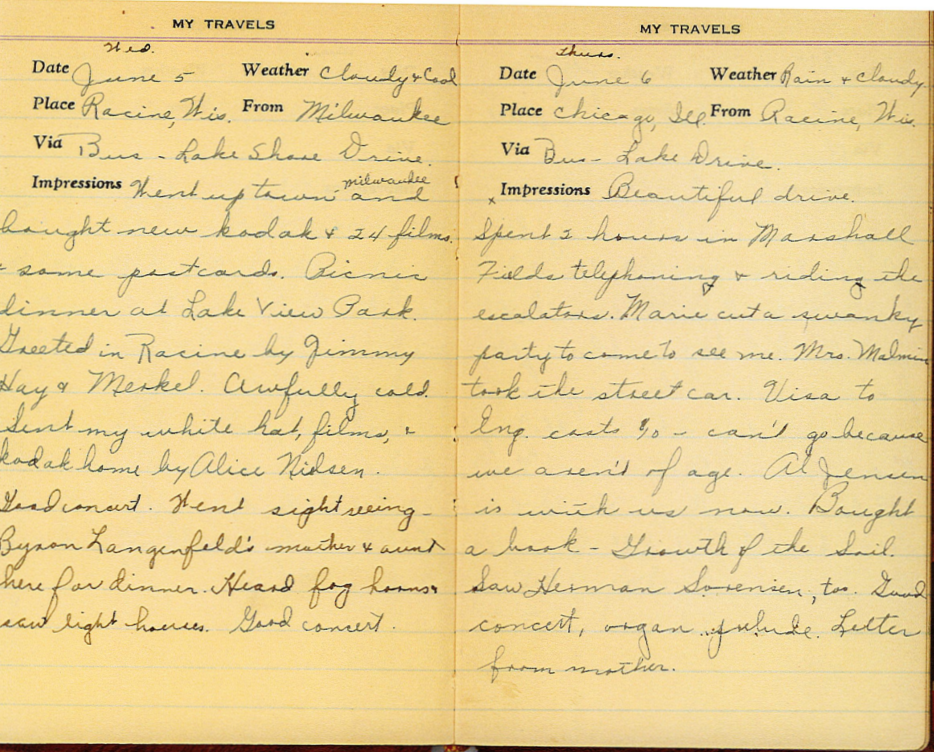 MY TRAVELS
Wed.
Date June 5 Weather Cloudy & Cool
Place Racine, Wis. From Milwaukee
Via Bus - Lake Shore Drive.
Impressions Went up town Milwaukee and
bought new kodak & 24 films.
& some postcards. Picnic
dinner at Lake View Park.
Greeted in Racine by Jimmy
Hay & Merkel. Awfully cold.
Sent my white hat, films, &
kodak home by Alice Nielsen.
Good concert. Went sightseeing -
Byron Langenfeld's mother & aunt
here for dinner. Heard fog horns &
saw light houses. Good concert.
MY TRAVELS
Thurs.
Date June 6 Weather Rain & Cloudy
Place Chicago, Ill. From Racine, Wis.
Via Bus - Lake Drive.
Impressions Beautiful drive.
Spent 2 hours in Marshall
Fields telephoning & riding the
escalators. Marie cut a swanky
party to come to see me. Mrs.
took the street car. Visa to
Eng. costs - can't go because
we aren't of age. Al Jensen
is with us now. Bought
a book - Growth of the Soil.
Saw Herman Sorensen, too. Good
concert, organ prelude. Letter
from mother.